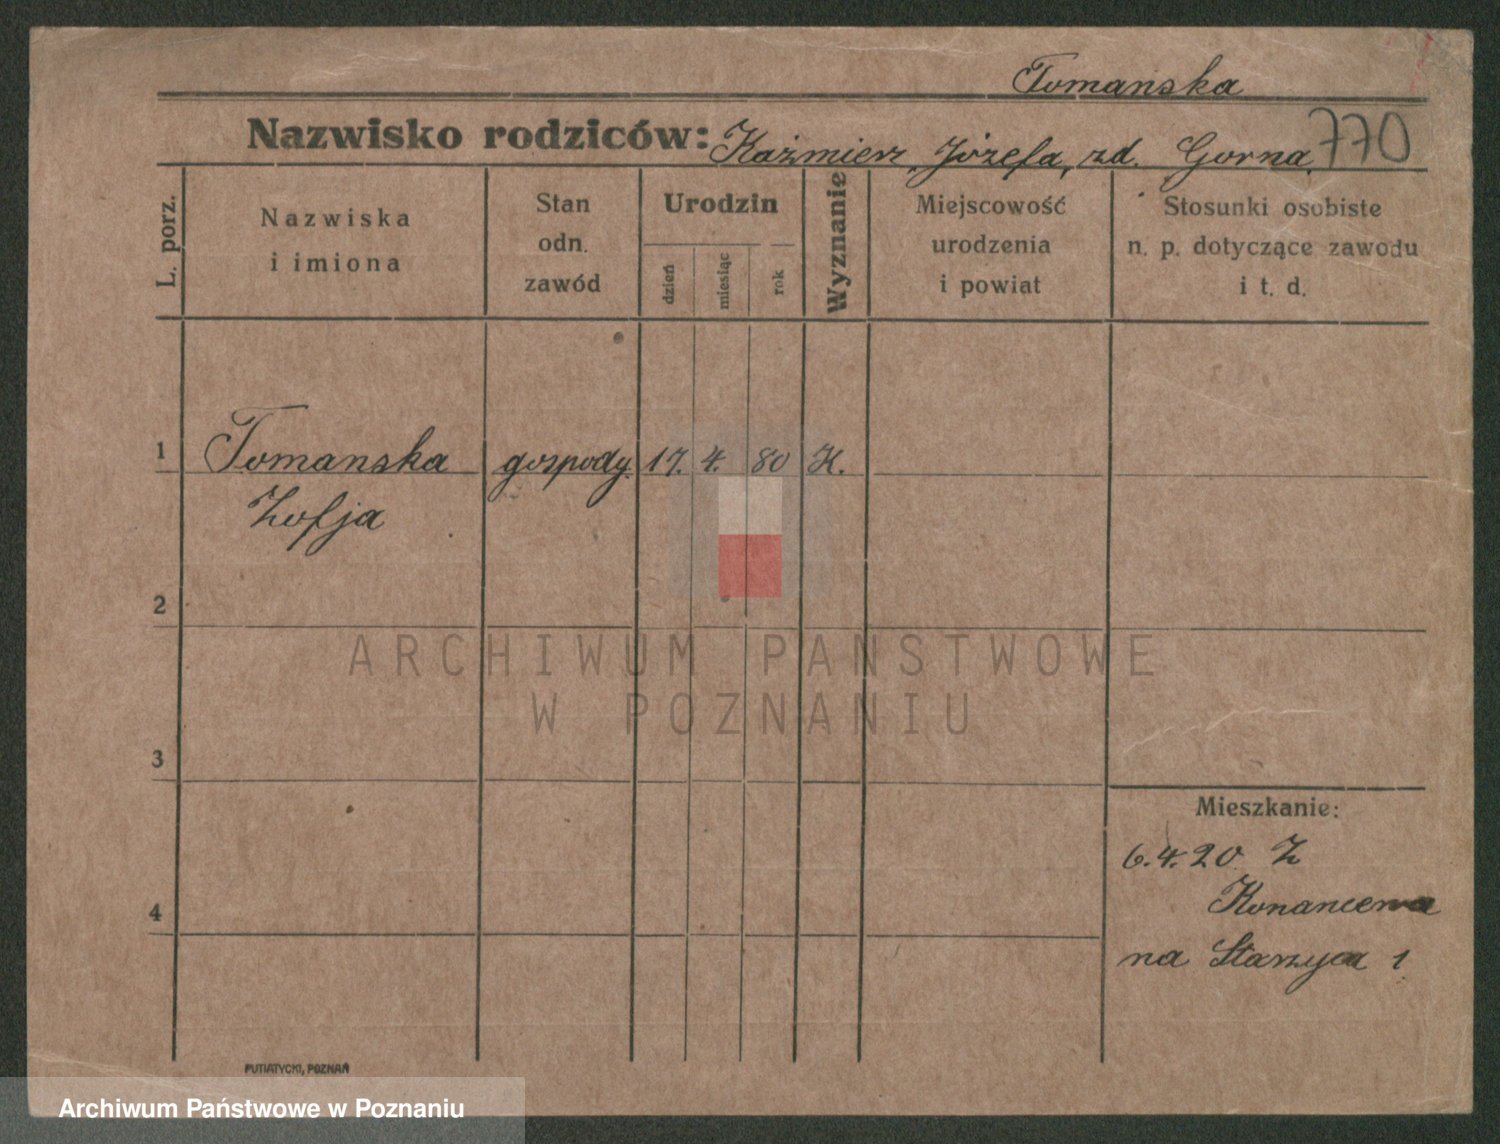 Tomanska
Nazwisko rodziców: Kaźmierz, Józefa, zd. Gorna 770
L. porz.
Nazwiska
i imiona
Stan
odn.
zawód
Urodzin
dzień
miesiąc
rok
Wyznanie
Miejscowość
urodzenia
i powiat
Stosunki osobiste
n. p. dotyczące zawodu
i t. d.
1 Tomanska gospody. 17. 4. 80 K.
Zofja
2
ARCHIWUM PAŃSTWOWE
W POZNANIU
3
Mieszkanie:
6.4.20 Z
4
na 1
PUTIATYCKI, POZNAŃ
Archiwum Państwowe w Poznaniu